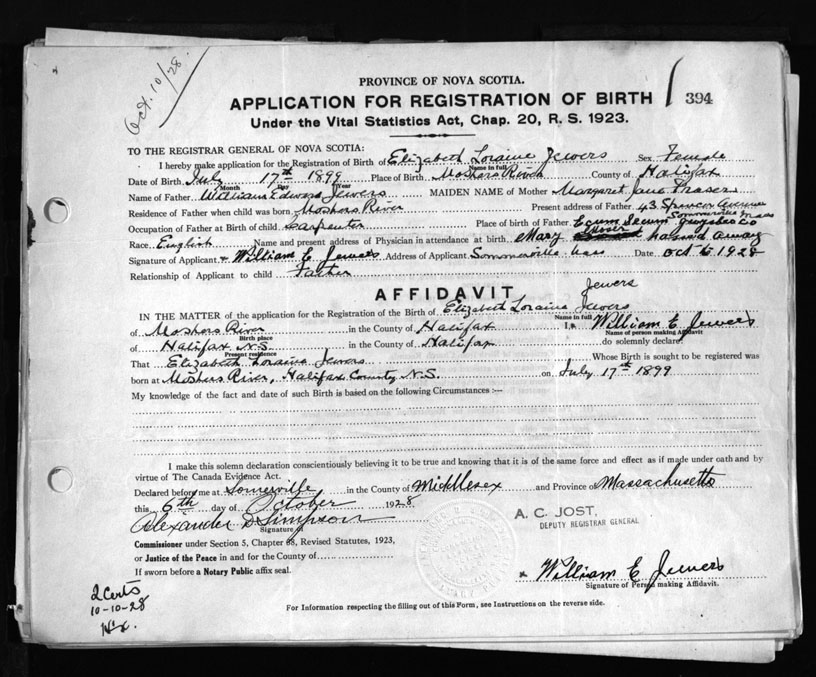 Oct. 10/28
PROVINCE OF NOVA SCOTIA.
APPLICATION FOR REGISTRATION OF BIRTH 394
Under the Vital Statistics Act, Chap. 20, R. S. 1923.
TO THE REGISTRAR GENERAL OF NOVA SCOTIA:
I hereby make application for the Registration of Birth of Elizabeth Loraine Jewers Sex Female
Name in full
Date of Birth July 17th 1899 Place of Birth Moshers River County of Halifax
Month Day Year
Name of Father William Edward Jewers MAIDEN NAME of Mother Margaret Jane Fraser
Residence of Father when child was born Moshers River Present address of Father 43 Spencer Avenue
Sommerville Mass
Occupation of Father at Birth of child Carpenter Place of Birth of Father Ecum Secum
Race English Name and present address of Physician in attendance at birth Mary Moser passed away
Signature of Applicant William E Jewers Address of Applicant Sommerville Mass Date Oct 1928
Relationship of Applicant to child Father
AFFIDAVIT
Jewers
IN THE MATTER of the application for the Registration of the Birth of Elizabeth Loraine Jewers
Name in full
of Moshers River in the County of Halifax I, William E Jewers
Birth place Name of person making Affidavit
of Halifax N.S. in the County of Halifax do solemnly declare:
Present residence
That Elizabeth Loraine Jewers Whose Birth is sought to be registered was
born at Moshers River, Halifax County N.S. on July 17th 1899
My knowledge of the fact and date of such Birth is based on the following Circumstances :—
I make this solemn declaration conscientiously believing it to be true and knowing that it is of the same force and effect as if made under oath and by
virtue of The Canada Evidence Act.
Declared before me at Somerville in the County of Middlesex and Province of Massachusetts
this 6th day of October 1928
A. C. JOST,
DEPUTY REGISTRAR GENERAL
Alexander D Simpson
Signature of
Commissioner under Section 5, Chapter 88, Revised Statutes, 1923,
or Justice of the Peace in and for the County of
If sworn before a Notary Public affix seal.
William E Jewers
Signature of Person making Affidavit.
2 Certs
10-10-28
For Information respecting the filling out of this Form, see Instructions on the reverse side.